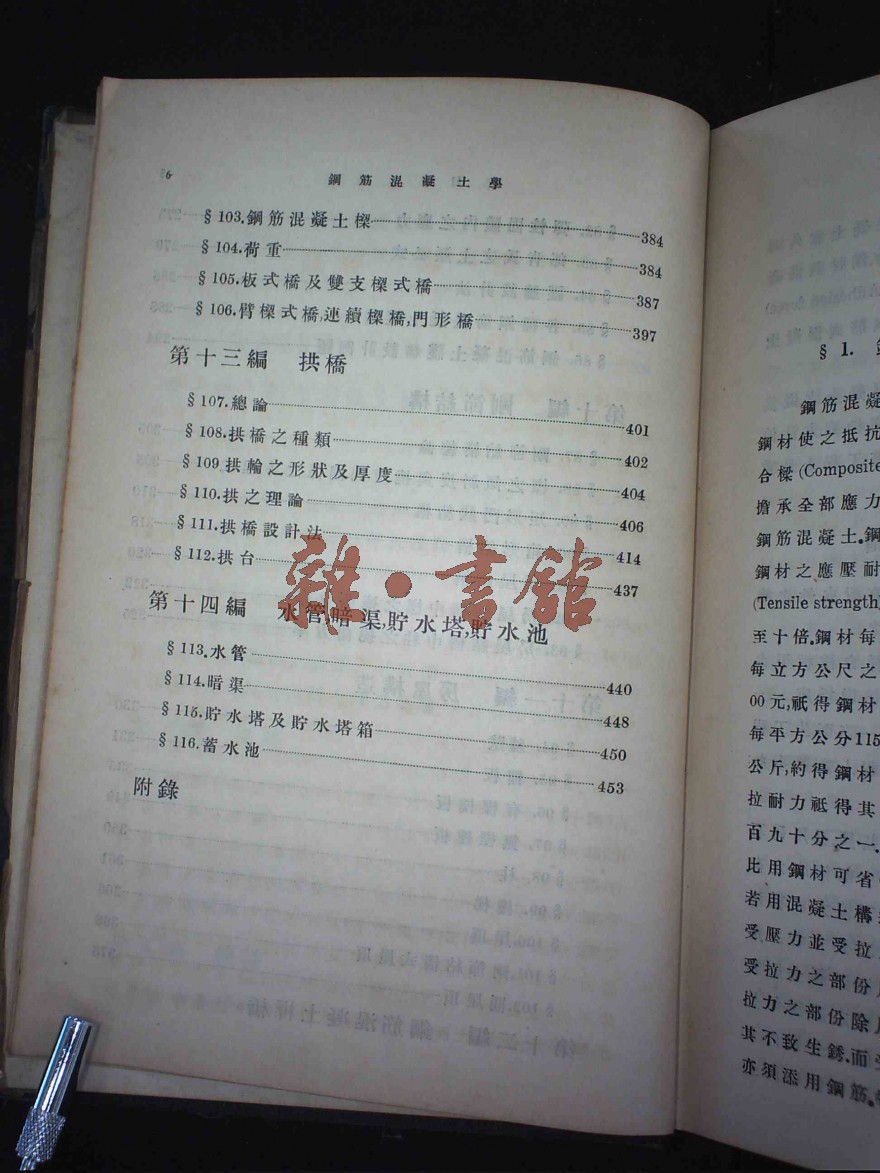 6
鋼筋混凝土學
§103.鋼筋混凝土樑 384
§104.荷重 384
§105.板式橋及雙支樑式橋 387
§106.臂樑式橋,連續樑橋,門形橋 397
第十三編 拱橋
§107.總論 401
§108.拱橋之種類 402
§109拱輪之形狀及厚度 404
§110.拱之理論 406
§111.拱橋設計法 414
§112.拱台 437
第十四編 水管,暗渠,貯水塔,貯水池
§113.水管 440
§114.暗渠 448
§115.貯水塔及貯水塔箱 450
§116.蓄水池 453
附錄
雜·書館
§ 1.
鋼筋混凝
鋼材使之抵抗
合樑(Composite
擔承全部應力
鋼筋混凝土.鋼
鋼材之應壓耐
(Tensile strength)
至十倍.鋼材每
每立方公尺之
00元,祇得鋼材
每平方公分115
公斤,約得鋼材
拉耐力祇得其
百九十分之一.
比用鋼材可省
若用混凝土構
受壓力並受拉
受拉力之部份
拉力之部份除
其不致生銹.而
亦須添用鋼筋.